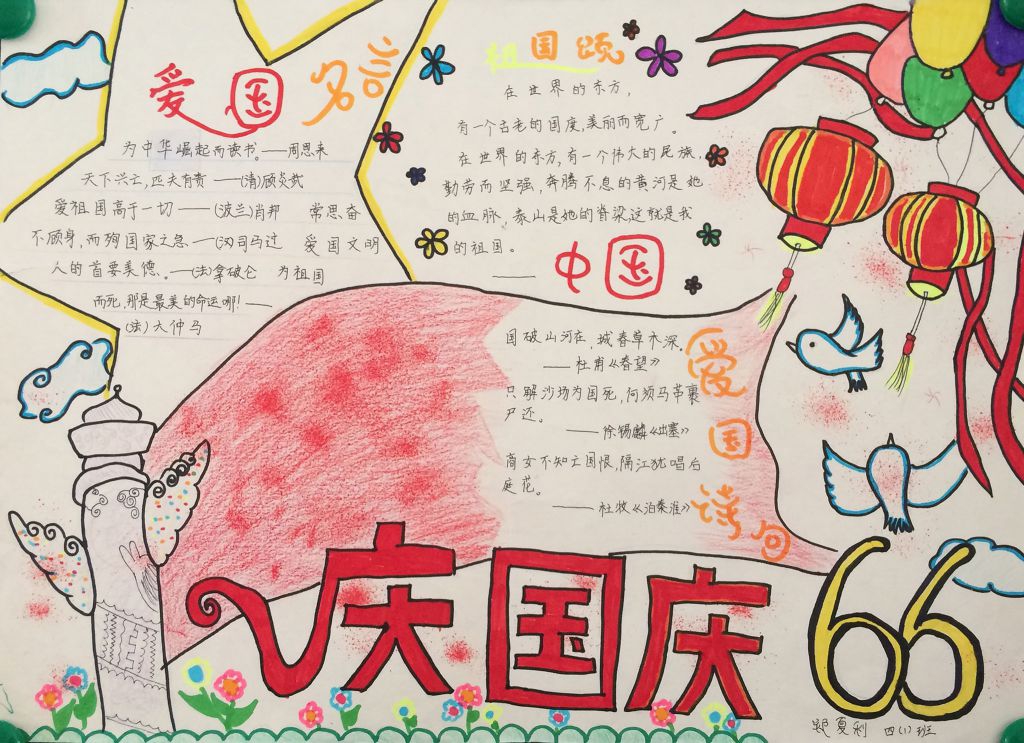 爱国名言
为中华崛起而读书。——周恩来
天下兴亡,匹夫有责——(清)顾炎武
爱祖国高于一切——(波兰)肖邦 常思奋
不顾身,而殉国家之急——(汉)司马迁 爱国文明
人的首要美德。——(法)拿破仑 为祖国
而死,那是最美的命运哪!——
(法)大仲马
祖国颂
在世界的东方,
有一个古老的国度,美丽而宽广。
在世界的东方,有一个伟大的民族,
勤劳而坚强,奔腾不息的黄河是她
的血脉,泰山是她的脊梁这就是我
的祖国。
——中国
国破山河在,城春草木深。
——杜甫《春望》
只解沙场为国死,何须马革裹
尸还。
——徐锡麟《出塞》
商女不知亡国恨,隔江犹唱后
庭花。
——杜牧《泊秦淮》
爱国诗词
庆国庆
66
夏利 四(1)班